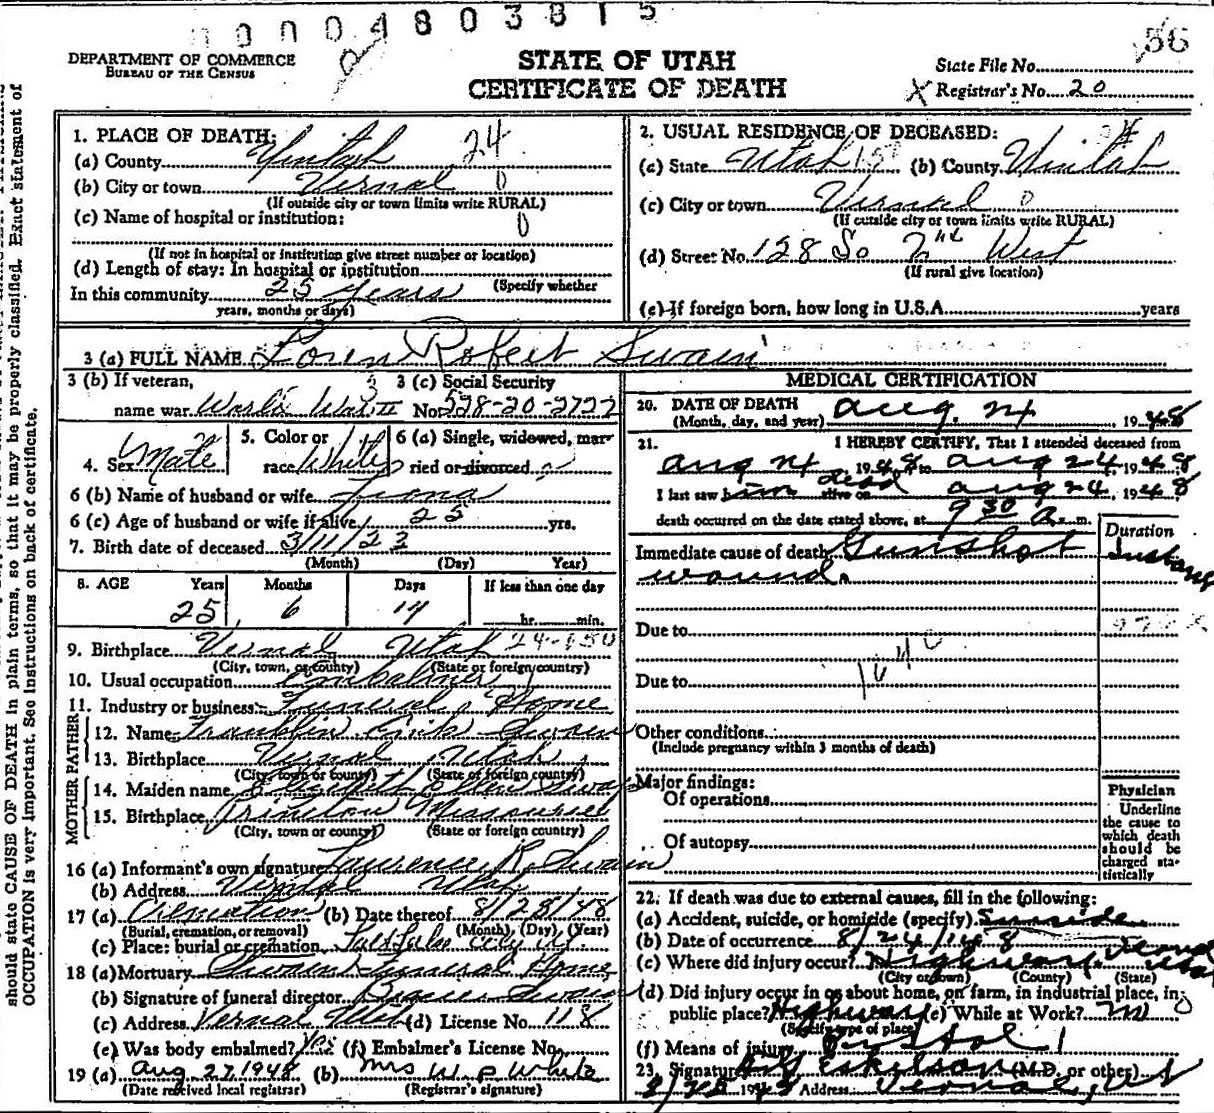 0004803815
56
DEPARTMENT OF COMMERCE
BUREAU OF THE CENSUS
STATE OF UTAH
CERTIFICATE OF DEATH
State File No.
X Registrar's No. 20
should state CAUSE OF DEATH in plain terms, so that it may be properly classified. Exact statement of
OCCUPATION is very important. See instructions on back of certificate.
1. PLACE OF DEATH: 24
(a) County Uintah
(b) City or town Vernal 0
(If outside city or town limits write RURAL)
(c) Name of hospital or institution: 0
(If not in hospital or institution give street number or location)
(d) Length of stay: In hospital or institution
(Specify whether
In this community 25 years
years, months or days)
2. USUAL RESIDENCE OF DECEASED:
(a) State Utah (b) County Uintah
(c) City or town Vernal 0
(If outside city or town limits write RURAL)
(d) Street No. 128 So 2nd West
(If rural give location)
(e) If foreign born, how long in U.S.A. years
3 (a) FULL NAME Loren Robert Swain
3 (b) If veteran,
name war World War II
3 (c) Social Security
No. 528-20-2722
4. Sex Male
5. Color or
race White
6 (a) Single, widowed, mar-
ried or divorced
6 (b) Name of husband or wife
6 (c) Age of husband or wife if alive 25 yrs.
7. Birth date of deceased 3/11/23
(Month) (Day) Year)
8. AGE Years Months Days If less than one day
25 6 14 hr. min.
9. Birthplace Vernal Utah
(City, town, or county) (State or foreign country)
10. Usual occupation Embalmer
11. Industry or business Funeral Home
FATHER
12. Name Franklin Swain
13. Birthplace Vernal Utah
(City, town or county) (State of foreign country)
MOTHER
14. Maiden name
15. Birthplace Princeton Missouri
(City, town or county) (State or foreign country)
16 (a) Informant's own signature Lawrence R. Swain
(b) Address Vernal Utah
17 (a) Cremation (b) Date thereof 8/28/48
(Burial, cremation, or removal) (Month), (Day), (Year)
(c) Place: burial or cremation Salt Lake City Ut.
18 (a) Mortuary Swain Funeral Home
(b) Signature of funeral director Swain
(c) Address Vernal Utah (d) License No. 118
(e) Was body embalmed? Yes (f) Embalmer's License No.
19 (a) Aug 27, 1948 (b) Mrs W P White
(Date received local registrar) (Registrar's signature)
MEDICAL CERTIFICATION
20. DATE OF DEATH Aug. 24, 1948
(Month, day, and year)
21. I HEREBY CERTIFY, That I attended deceased from
Aug 24, 1948 to Aug 24, 1948
I last saw him dead alive on Aug 24, 1948
death occurred on the date stated above, at 9 30 a. m.
Duration
Immediate cause of death Gunshot Instant
wound.
Due to
Due to
Other conditions
(Include pregnancy within 3 months of death)
Major findings:
Of operations
Of autopsy
Physician
Underline
the cause to
which death
should be
charged sta-
tistically
22. If death was due to external causes, fill in the following:
(a) Accident, suicide, or homicide (specify) Suicide
(b) Date of occurrence 8/24/1948
(c) Where did injury occur? Highway. Vernal Utah
(City or town) (County) (State)
(d) Did injury occur in or about home, on farm, in industrial place, in
public place? Highway (e) While at Work? no
(Specify type of place)
(f) Means of injury Pystol
23. Signature Eskelson (M.D. or other)
1948 Address: Vernal, Ut